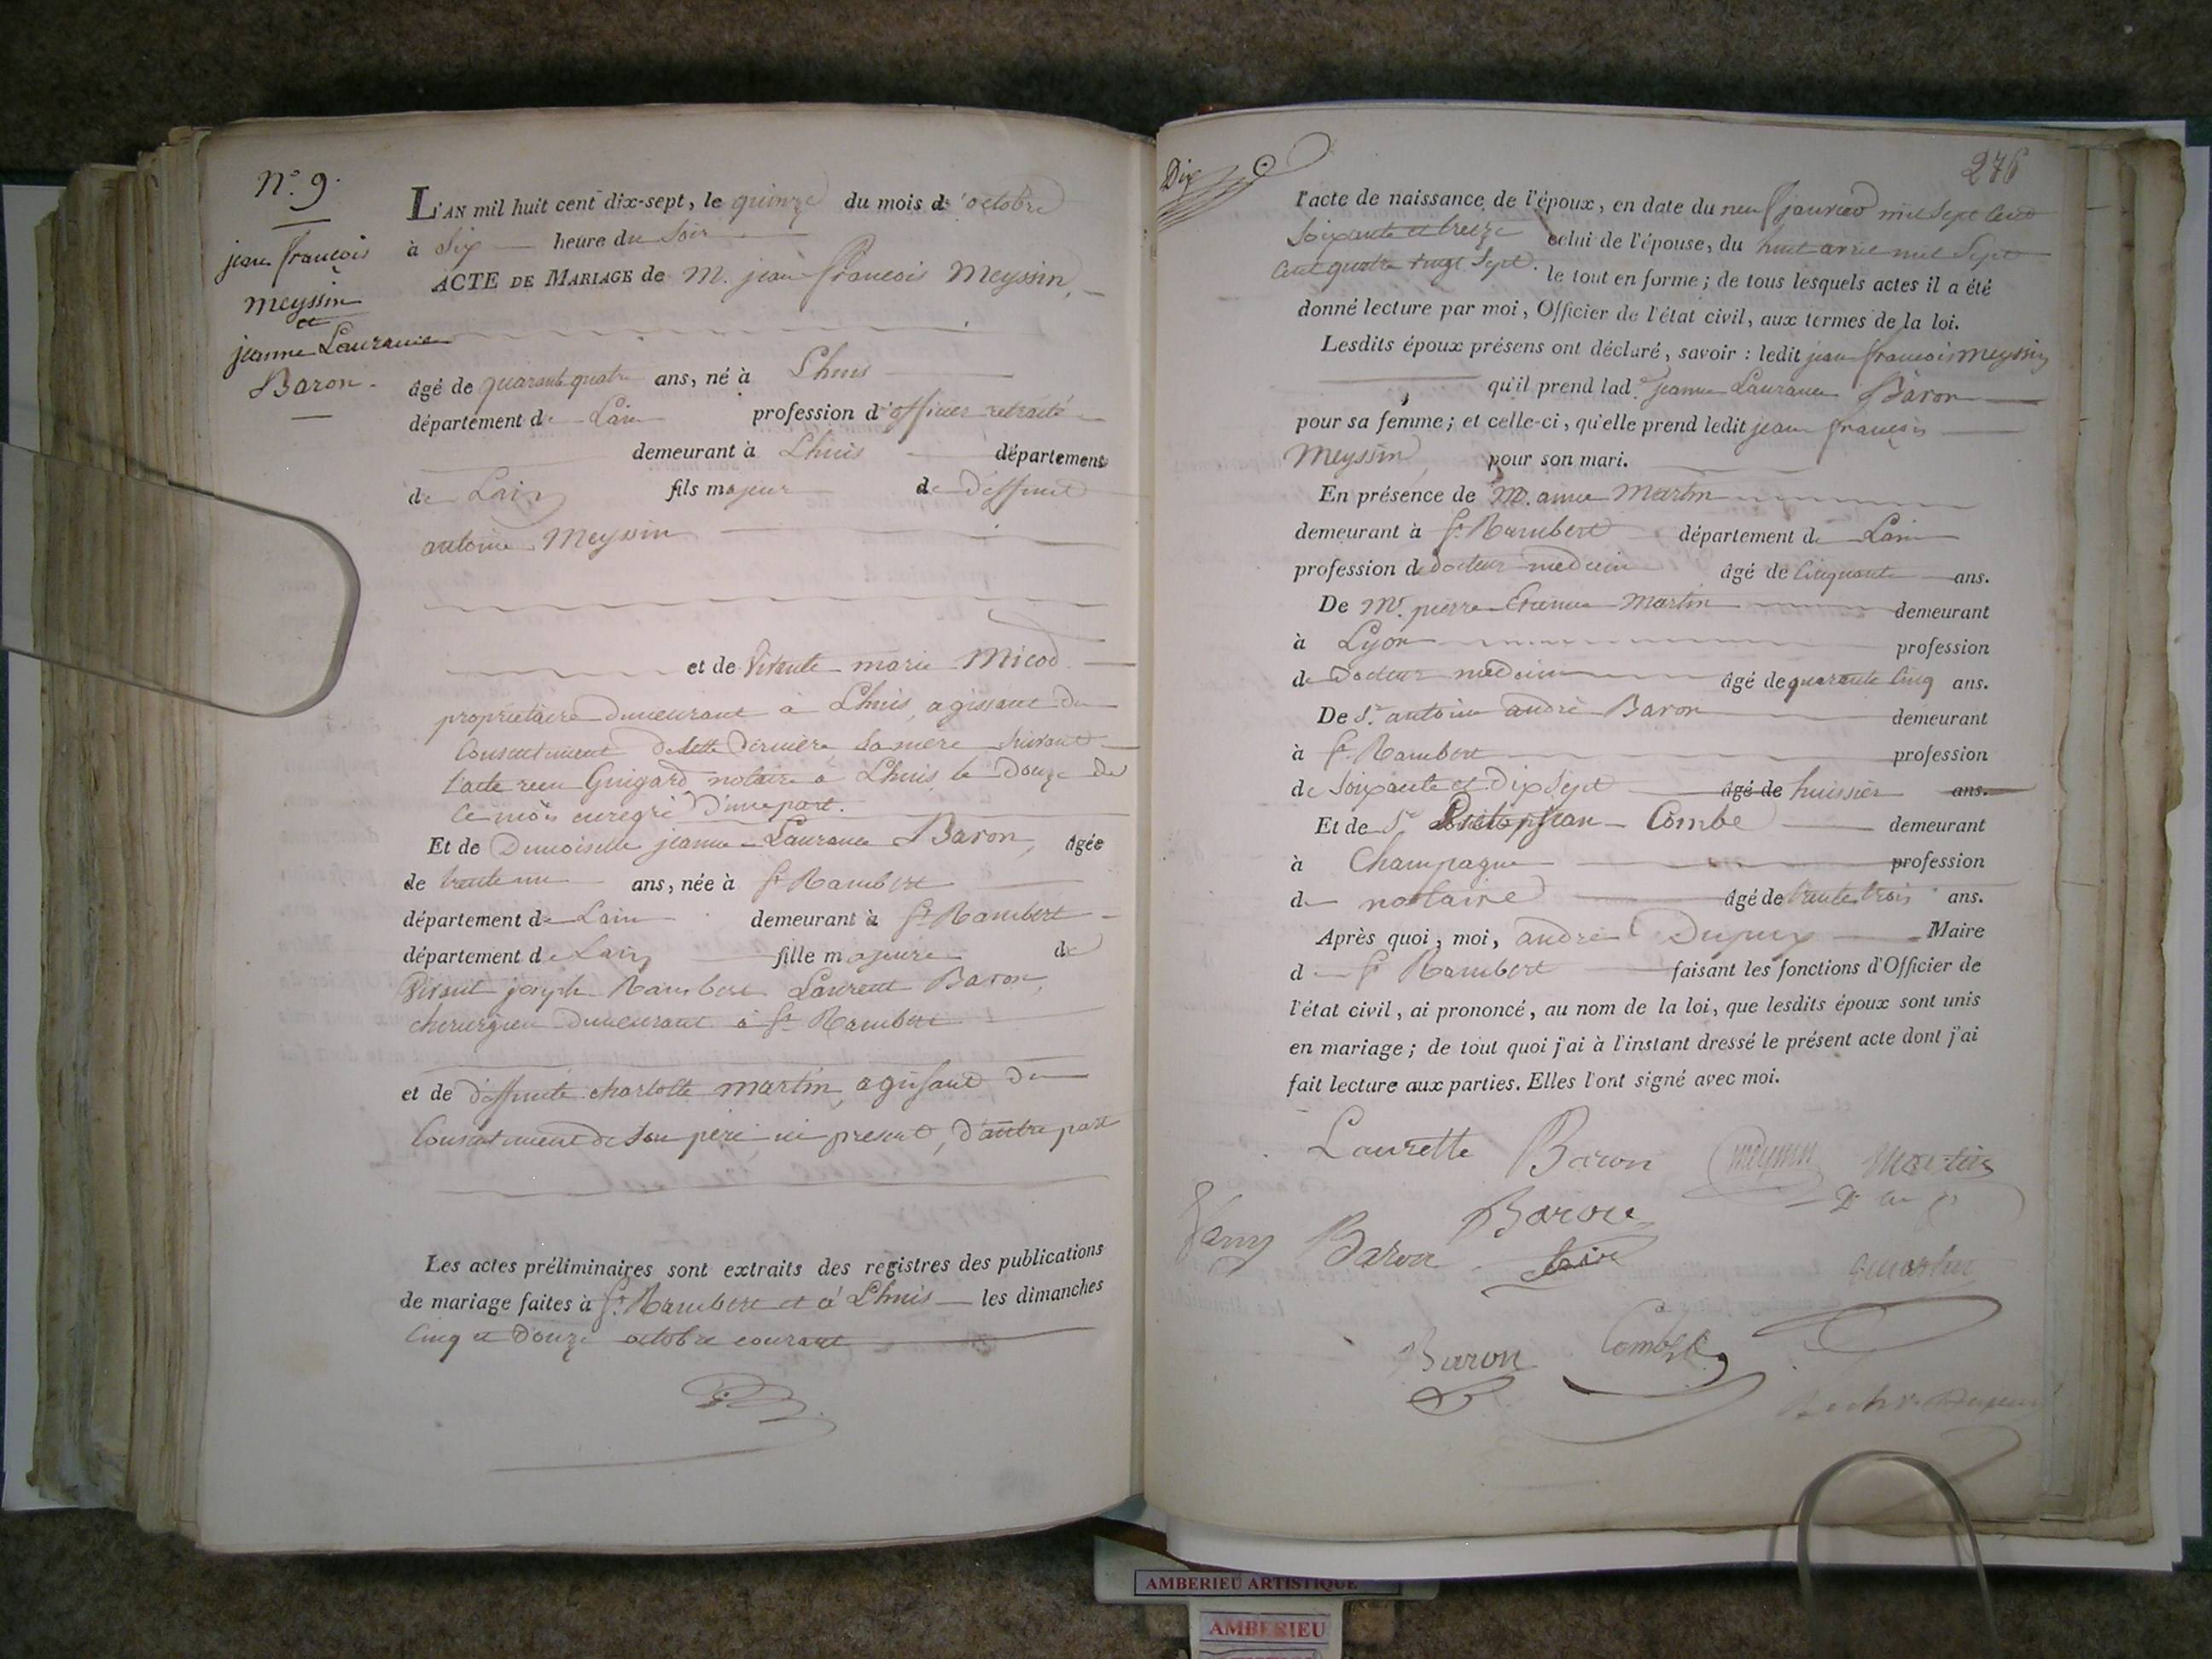 N.° 9.
jean françois
meyssin
et
jeanne Laurance
Baron.
L'AN mil huit cent dix-sept, le quinze du mois d'octobre
à Six heure du Soir
ACTE DE MARIAGE de M. jean françois Meyssin,
âgé de quarante quatre ans, né à Lhuis
département de Lain profession d'officier retraité
demeurant à Lhuis département
de Lain fils majeur de deffunt
antoine Meyssin
et de vivante marie Micod
propriétaire demeurant à Lhuis, agissant du
Consentement de cette dernière sa mère suivant
l'acte reçu Guigard notaire à Lhuis le Douze de
Ce mois enregré D'une part.
Et de Demoiselle jeanne Laurance Baron, âgée
de trente un ans, née à St Rambert
département de Lain demeurant à St Rambert
département de Lain fille majeure de
Vivant joseph Rambert Laurent Baron,
cherurgien demeurant à St Rambert
et de deffunte charlotte martin, agissant du
Consentement de Son père ici présent, d'autre part
Les actes préliminaires sont extraits des régistres des publications
de mariage faites à St Rambert et à Lhuis les dimanches
Cinq et Douze octobre courant
Dix
276
l'acte de naissance de l'époux, en date du neuf janvier mil Sept Cent
Soixante et treize celui de l'épouse, du huit avril mil Sept
Cent quatre vingt Sept. le tout en forme; de tous lesquels actes il a été
donné lecture par moi, Officier de l'état civil, aux termes de la loi.
Lesdits époux présens ont déclaré, savoir : ledit jean françois meyssin
qu'il prend lad.e jeanne Laurance Baron
pour sa femme; et celle-ci, qu'elle prend ledit jean françois
Meyssin pour son mari.
En présence de M. aimé Martin
demeurant à St Rambert département de Lain
profession de docteur medecin âgé de Cinquante ans.
De Mr. pierre Etienne Martin demeurant
à Lyon profession
de Docteur medecin âgé de quarante Cinq ans.
De Sr. antoine andré Baron demeurant
à St Rambert profession
de Soixante et Dix Sept âgé de huissier ans.
Et de Sr jean Combe demeurant
à Champagne profession
de nottaire âgé de trente trois ans.
Après quoi, moi, andré Dupuy Maire
de St Rambert faisant les fonctions d'Officier de
l'état civil, ai prononcé, au nom de la loi, que lesdits époux sont unis
en mariage; de tout quoi j'ai à l'instant dressé le présent acte dont j'ai
fait lecture aux parties. Elles l'ont signé avec moi.
Laurette Baron meyssin Martin
Fany Baron Baron
Baron Combe
AMBERIEU ARTISTIQUE
AMBERIEU